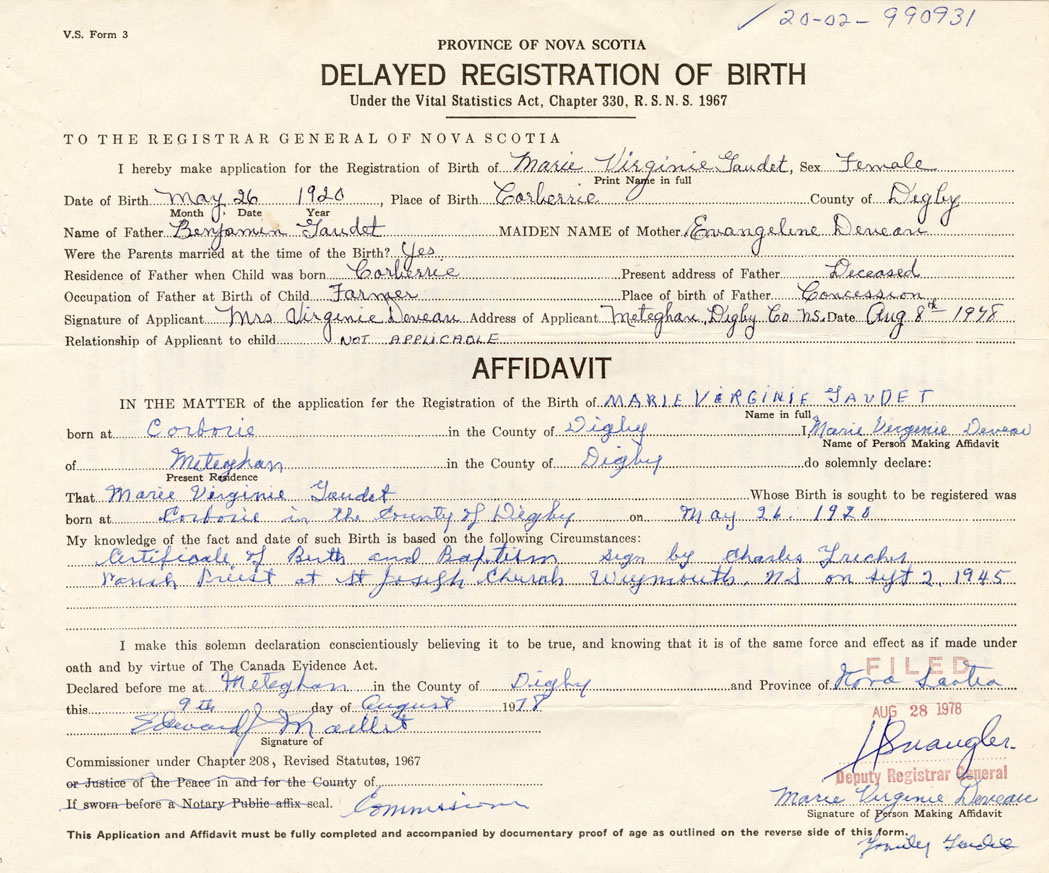 20-02-990931
V.S. Form 3
PROVINCE OF NOVA SCOTIA
DELAYED REGISTRATION OF BIRTH
Under the Vital Statistics Act, Chapter 330, R.S.N.S. 1967
TO THE REGISTRAR GENERAL OF NOVA SCOTIA
I hereby make application for the Registration of Birth of Marie Virginie Gaudet, Sex Female
Print Name in full
Date of Birth May 26 1920, Place of Birth Corberrie County of Digby
Month Date Year
Name of Father Benjamin Gaudet MAIDEN NAME of Mother Evangeline Deveau
Were the Parents married at the time of the Birth? Yes
Residence of Father when Child was born Corberrie Present address of Father Deceased
Occupation of Father at Birth of Child Farmer Place of birth of Father Concession
Signature of Applicant Mrs Virginie Deveau Address of Applicant Meteghan, Digby Co NS. Date Aug 8th 1978
Relationship of Applicant to child NOT APPLICABLE
AFFIDAVIT
IN THE MATTER of the application for the Registration of the Birth of MARIE VIRGINIE GAUDET
Name in full
born at Corborie in the County of Digby I, Marie Virginie Deveau
Name of Person Making Affidavit
of Meteghan in the County of Digby do solemnly declare:
Present Residence
That Marie Virginie Gaudet Whose Birth is sought to be registered was
born at Corborie in the County of Digby on May 26. 1920
My knowledge of the fact and date of such Birth is based on the following Circumstances:
Certificate of Birth and Baptism sign by Charles
Parish Priest at St Joseph Church Weymouth, NS on Sept 2, 1945
I make this solemn declaration conscientiously believing it to be true, and knowing that it is of the same force and effect as if made under
oath and by virtue of The Canada Evidence Act.
FILED
Declared before me at Meteghan in the County of Digby and Province of Nova Scotia
this 9th day of August 1978
AUG 28 1978
Edward J Maillet
Signature of
Commissioner under Chapter 208, Revised Statutes, 1967
or Justice of the Peace in and for the County of
Deputy Registrar General
If sworn before a Notary Public affix seal. Commissioner
Marie Virginie Deveau
Signature of Person Making Affidavit
This Application and Affidavit must be fully completed and accompanied by documentary proof of age as outlined on the reverse side of this form.